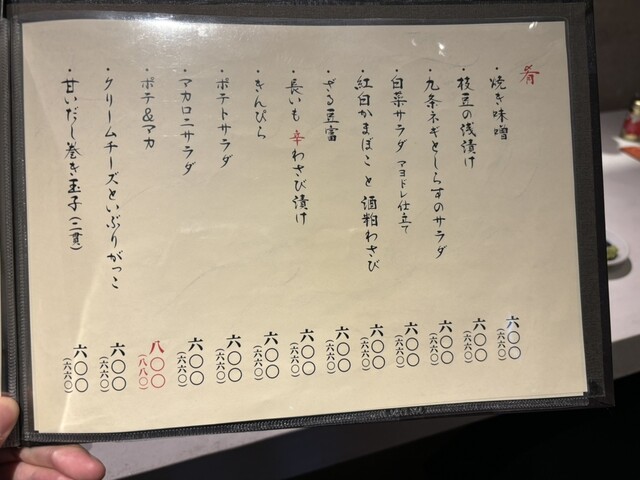 肴
・焼き味噌 六〇〇(六六〇)
・枝豆の浅漬け 六〇〇(六六〇)
・九条ネギとしらすのサラダ 六〇〇(六六〇)
・白菜サラダ アヨドレ仕立て 六〇〇(六六〇)
・紅白かまぼこと酒粕わさび 六〇〇(六六〇)
・ざる豆富 六〇〇(六六〇)
・長いも辛わさび漬け 六〇〇(六六〇)
・きんぴら 六〇〇(六六〇)
・ポテトサラダ 六〇〇(六六〇)
・マカロニサラダ 六〇〇(六六〇)
・ポテ&マカ 八〇〇(八八〇)
・クリームチーズといぶりがっこ 六〇〇(六六〇)
・甘いだし巻き玉子(二貫) 六〇〇(六六〇)